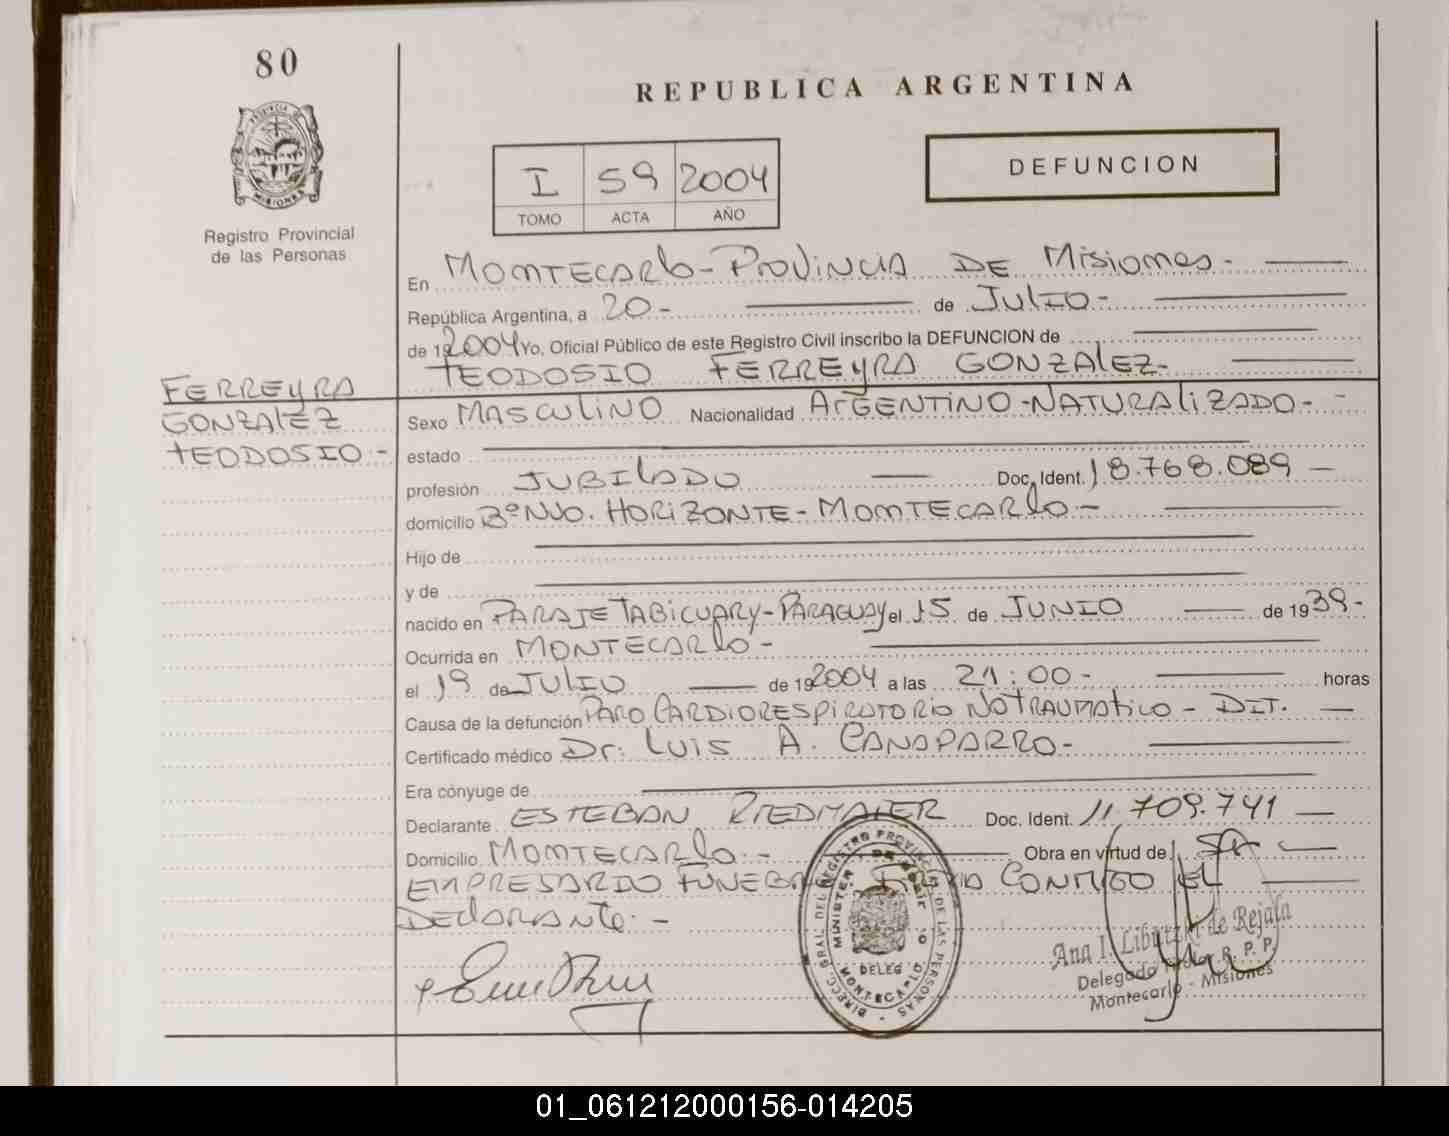 80
REPUBLICA ARGENTINA
PROVINCIA
MISIONES
Registro Provincial
de las Personas
I 59 2004
TOMO ACTA AÑO
DEFUNCION
En MONTECARlo - PROVINCIA DE Misiones -
República Argentina, a 20 - de JULIO -
de 192004 Yo, Oficial Público de este Registro Civil inscribo la DEFUNCION de
TEODOSIO FERREYRA GONZALEZ -
FERREYRA
GONZALEZ
TEODOSIO -
Sexo MASCULINO Nacionalidad ARGENTINO - NATURALIZADO -
estado
profesión JUBILADO Doc. Ident. 18.768.089 -
domicilio Bº NVO. HORIZONTE - MONTECARLO -
Hijo de
y de
nacido en PARAJE TABICUARY - PARAGUAY el 15 de JUNIO de 1939 -
Ocurrida en MONTECARLO -
el 19 de JULIO de 192004 a las 21:00 - horas
Causa de la defunción PARO CARDIORESPIRATORIO NO TRAUMATICO - DIT. -
Certificado médico Dr: LUIS A. CANAPARRO -
Era cónyuge de
Declarante ESTEBAN RIEDMAIER Doc. Ident. 11.709.741 -
Domicilio MONTECARLO - Obra en virtud de SER
EMPRESARIO FUNEBRE CONMIGO EL
DECLARANTE. -
DIRECC. GRAL. DEL REGISTRO PROVINCIAL DE LAS PERSONAS
DELEG
MONTECARLO
Ana I. de Rejala
Delegado R. P. P.
Montecarlo - Misiones
01_061212000156-014205